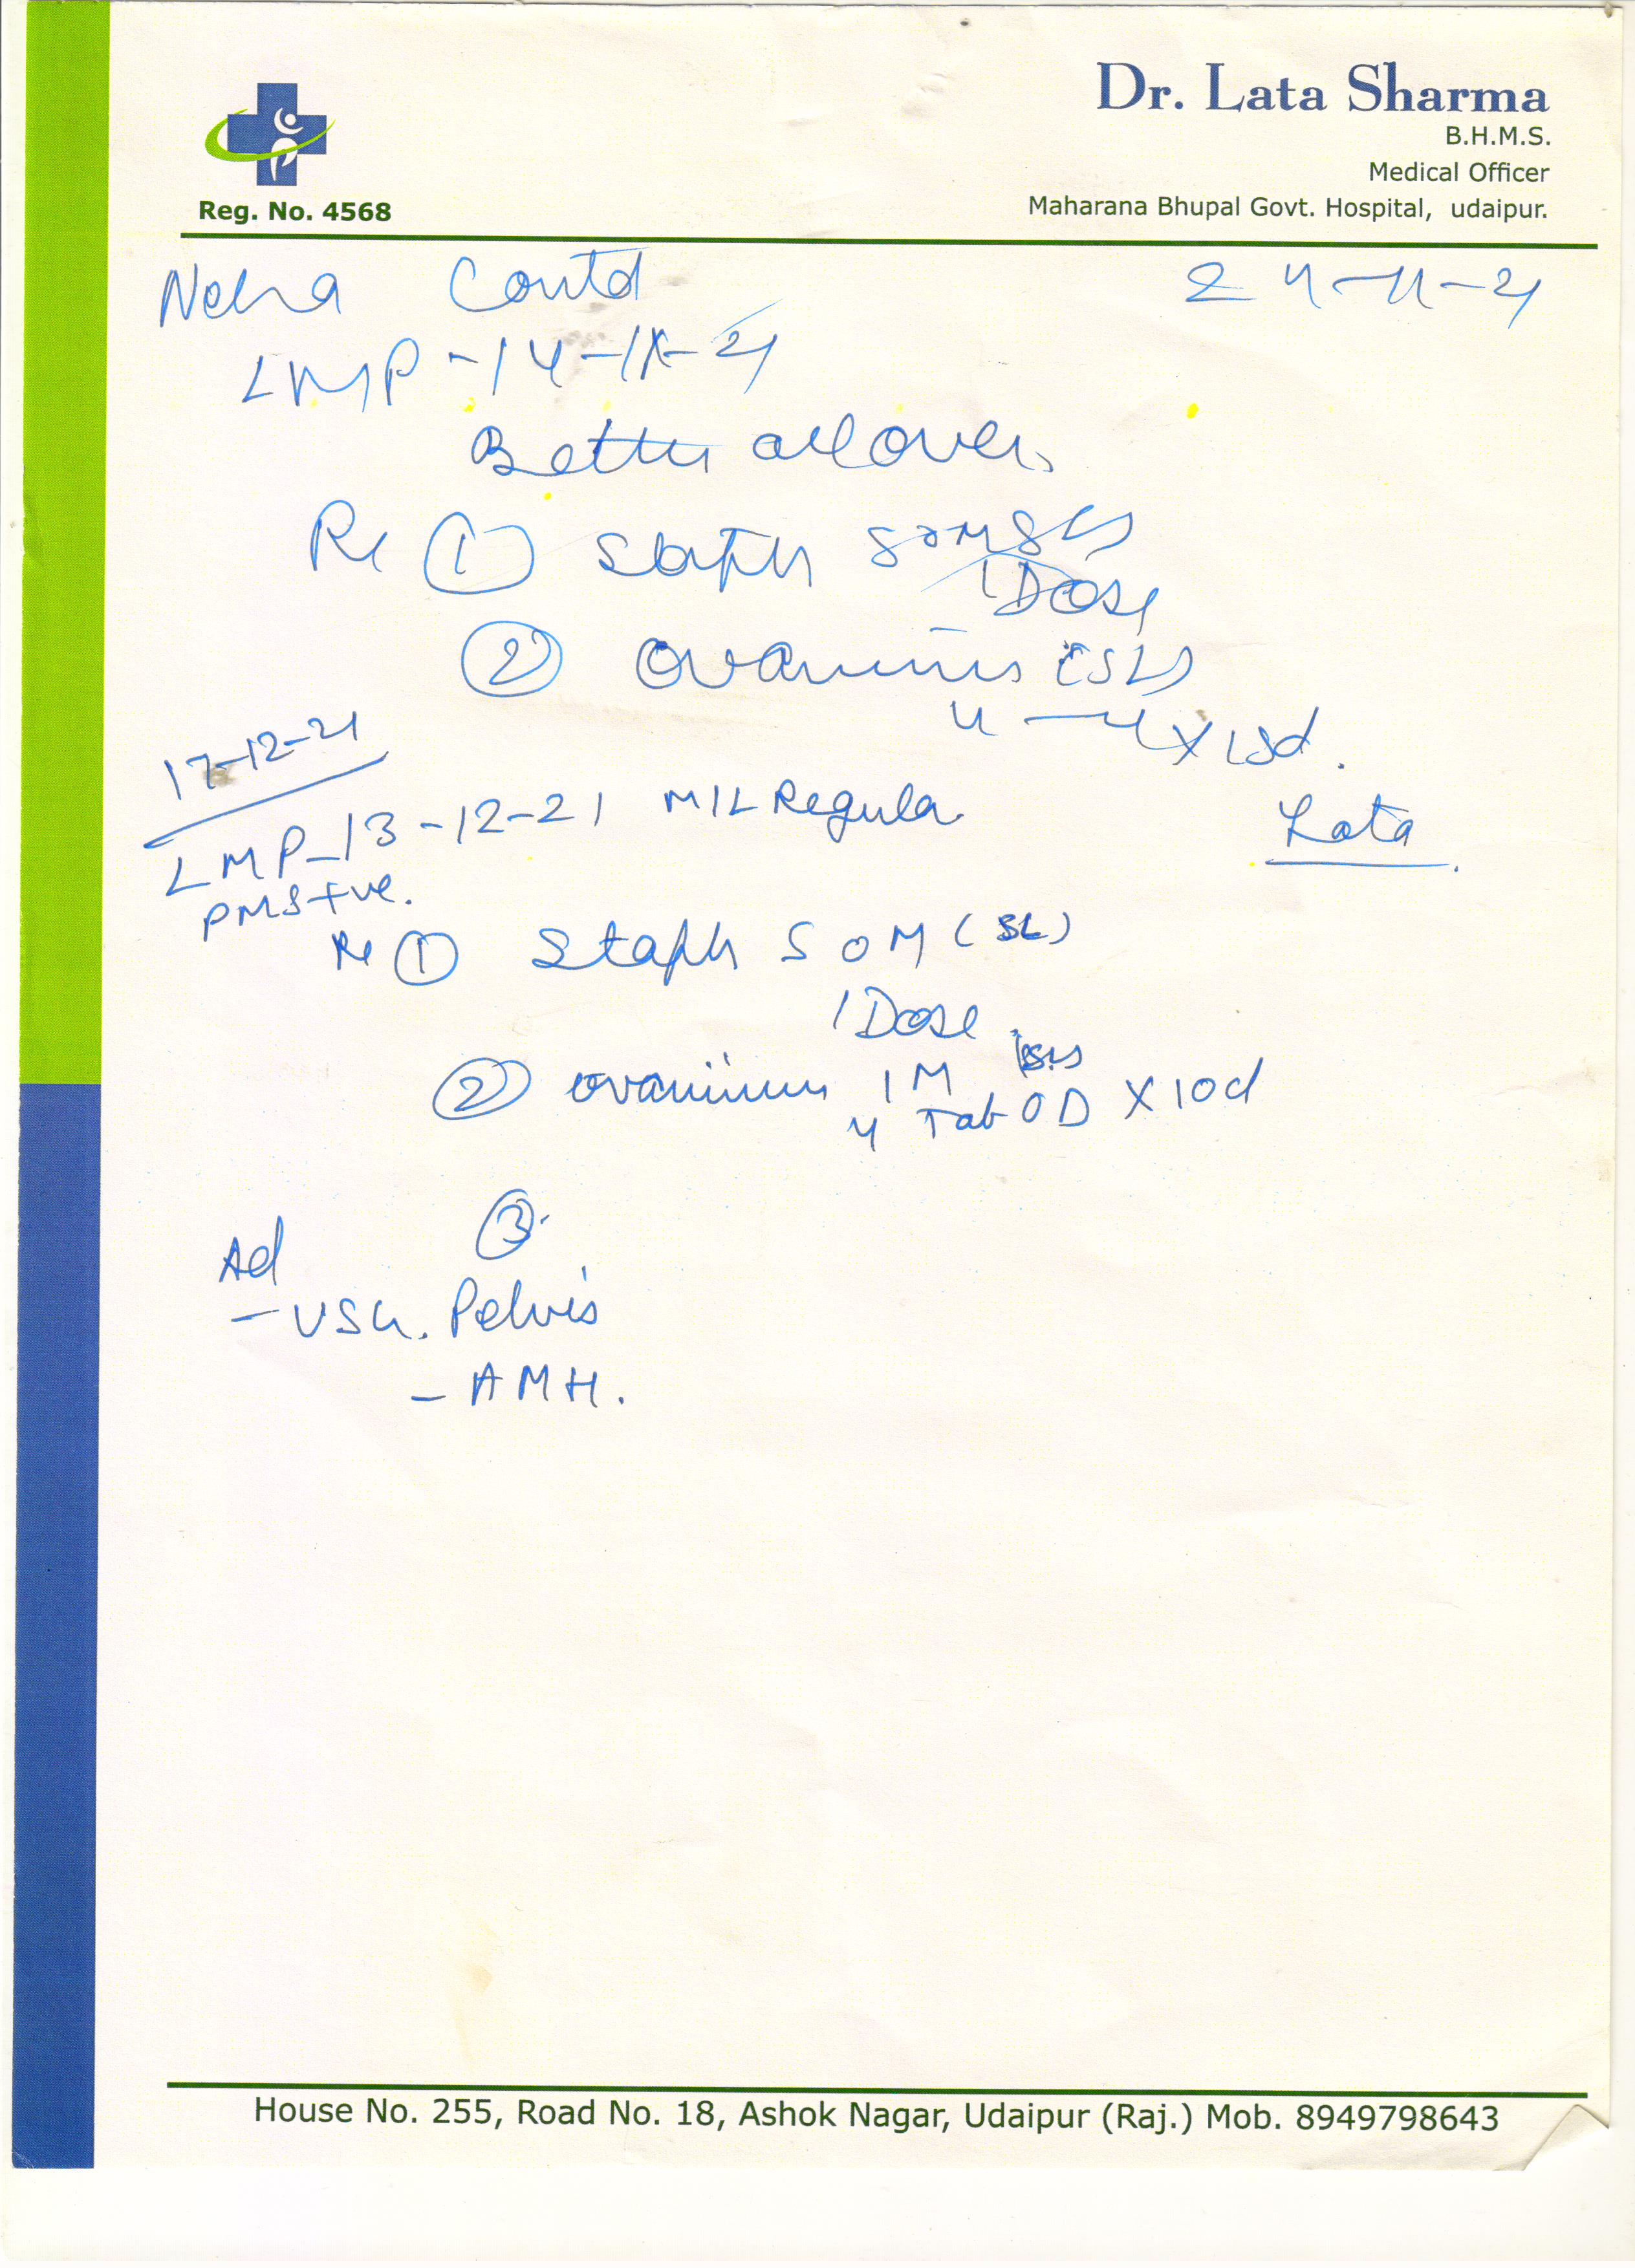 Dr. Lata Sharma
B.H.M.S.
Medical Officer
Maharana Bhupal Govt. Hospital, udaipur.
Reg. No. 4568
Neha Contd 24-11-21
LMP - 14-11-21
Better all over
Rx ① Staph 50M (SL)
1 Dose
② ovarinum (SL)
4 — 4 x 15d.
Lata
17-12-21
LMP - 13-12-21 M/L Regular
PMS +ve.
Rx ① Staph 50M (SL)
1 Dose
② ovarinum 1M (SL)
4 Tab OD X 10d
③
Ad
- USG. Pelvis
- AMH.
House No. 255, Road No. 18, Ashok Nagar, Udaipur (Raj.) Mob. 8949798643